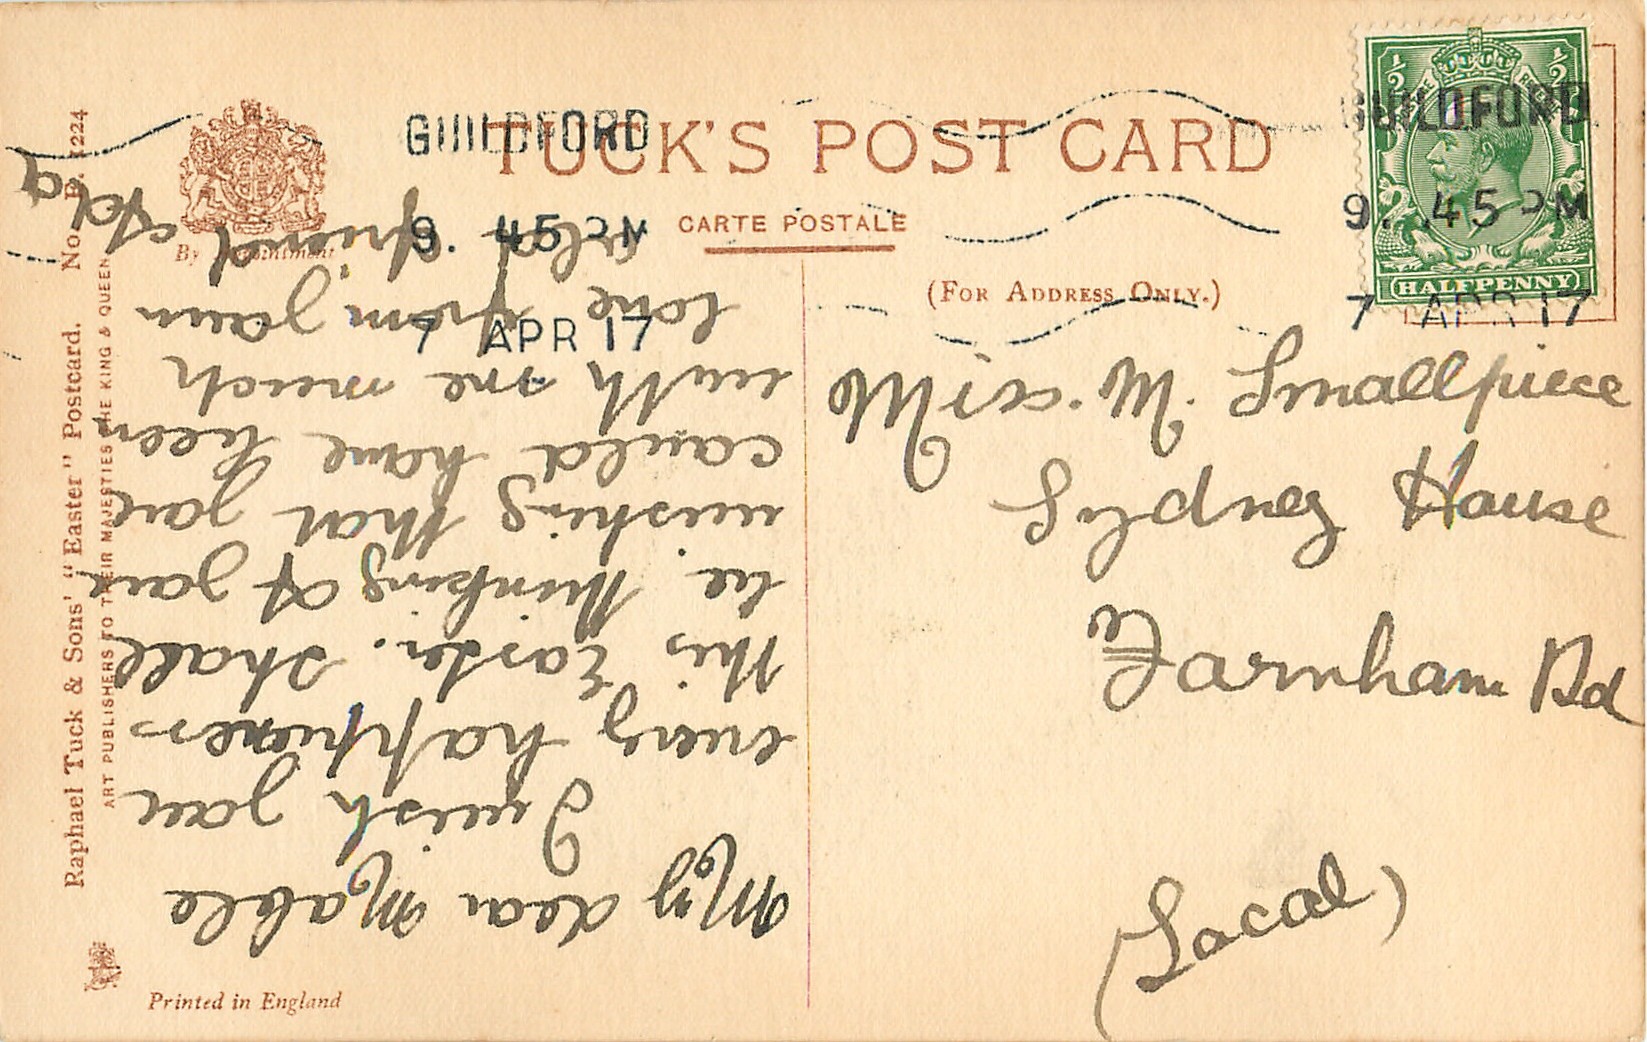 TUCK'S POST CARD
CARTE POSTALE
(FOR ADDRESS ONLY.)
By Appointment
GUILDFORD
9. 45 PM
7 APR 17
GUILDFORD
9. 45 PM
7 APR 17
½ ½
HALFPENNY
Miss. M. Smallpiece
Sydney House
Farnham Rd
(Local)
My dear Mable
I wish you
every happiness
this Easter. Shall
be thinking of you
wishing that you
could have been
with me much
love from your
old friend
Raphael Tuck & Sons' "Easter" Postcard. No. E. 1224
ART PUBLISHERS TO THEIR MAJESTIES THE KING & QUEEN
Printed in England